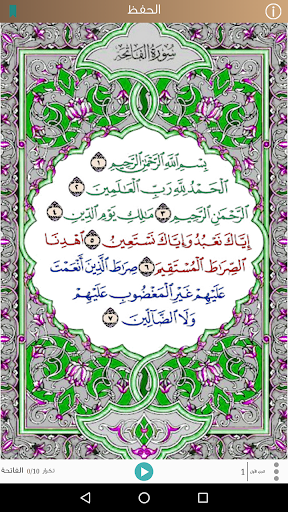 الحفظ
سورة الفاتحة
بِسْمِ اللَّهِ الرَّحْمَٰنِ الرَّحِيمِ ١
الْحَمْدُ لِلَّهِ رَبِّ الْعَالَمِينَ ٢
الرَّحْمَٰنِ الرَّحِيمِ ٣ مَالِكِ يَوْمِ الدِّينِ ٤
إِيَّاكَ نَعْبُدُ وَإِيَّاكَ نَسْتَعِينُ ٥ اهْدِنَا
الصِّرَاطَ الْمُسْتَقِيمَ ٦ صِرَاطَ الَّذِينَ أَنْعَمْتَ
عَلَيْهِمْ غَيْرِ الْمَغْضُوبِ عَلَيْهِمْ
وَلَا الضَّالِّينَ ٧
الجزء الأول 1
تكرار 0/10 الفاتحة